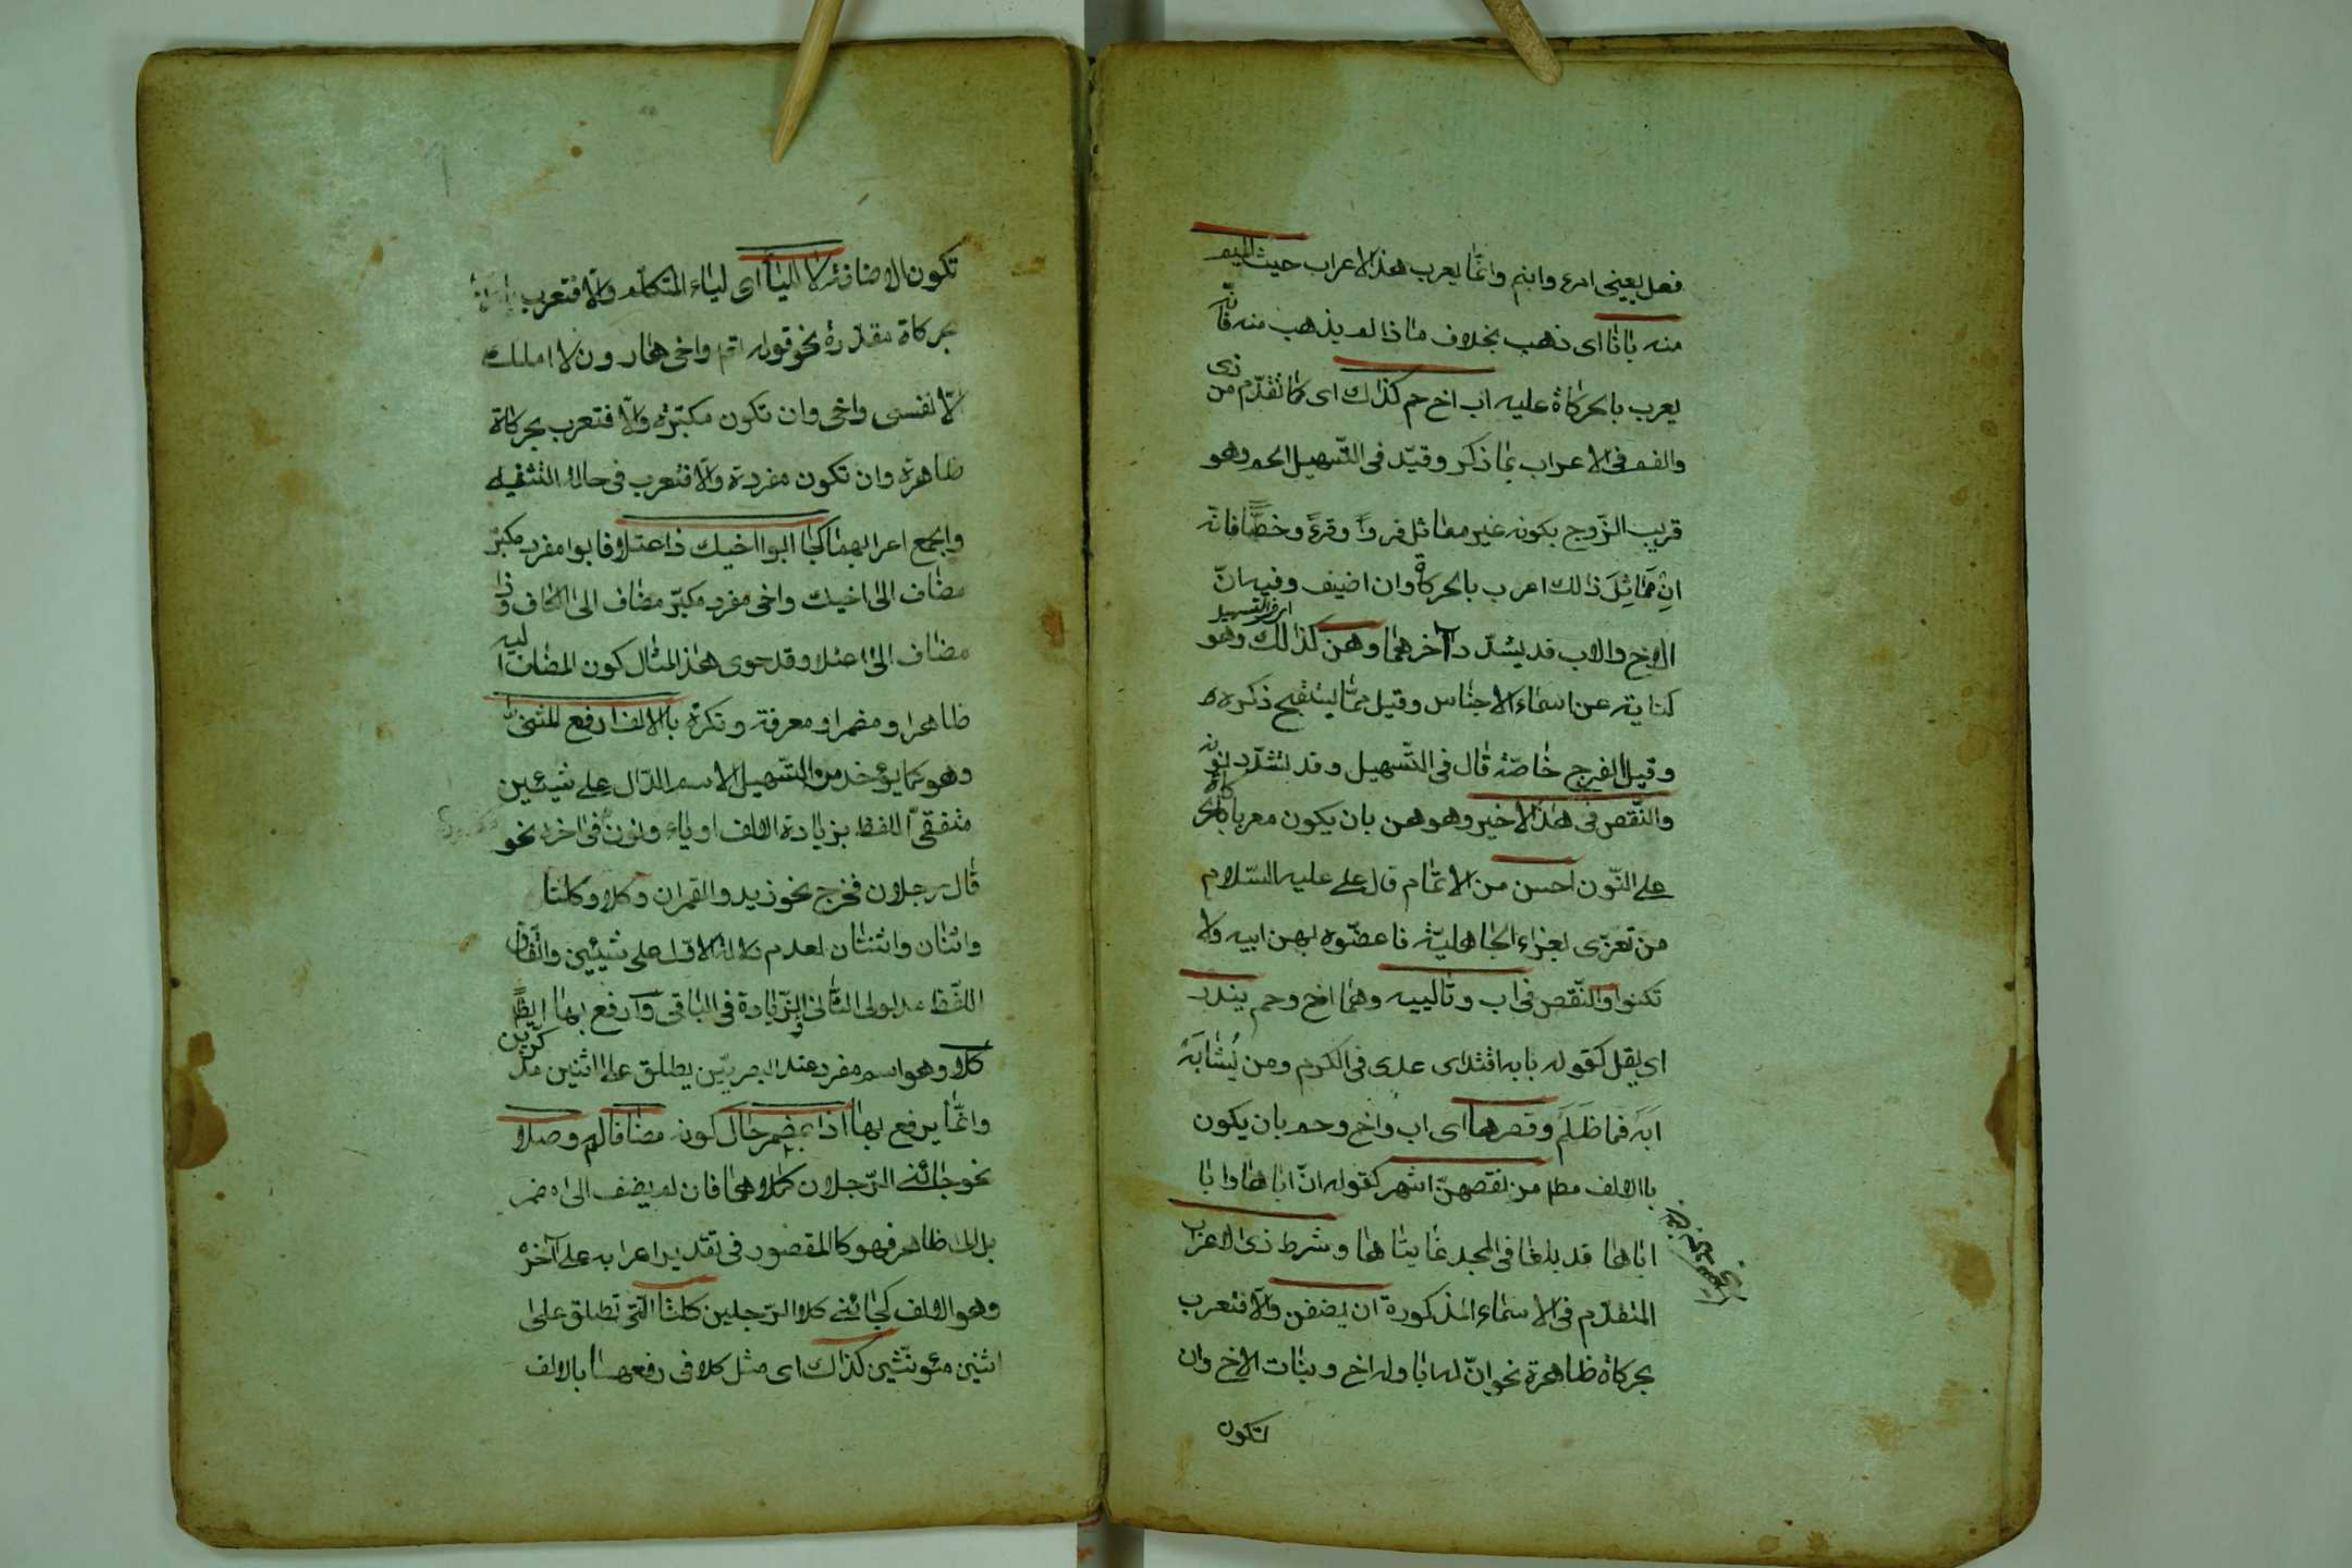 فعل يعنى امرء وابنم وانّما يعرب هذا لاعراب حيث الميم
منه بانا اى ذهب بخلاف ما اذا لم يذهب منه فانّه
يعرب بالحركاة عليه اب اخ حم كذاك اى كما تقدّم من ذى
والفم فى الاعراب بما ذكر وقيّد فى التّسهيل الحم وهو
قريب الزّوج بكونه غير مماثل قرواً وقرءً وخطّاً فانّه
ان مَمَاثِلَ ذالك اعرب بالحركاة وان اضيف وفيه انّ
الاخ والاب قد يشدّد آخرهما وهن كذالك وهو
اى فى التسهيل
كناية عن اسماء الاجناس وقيل ممّا يستقبح ذكره
وقيل الفرج خاصّة قال فى التّسهيل وقد تشدّد نونه
والنّقص فى هذا لاخير وهو هن بان يكون معربا بالحركاة
على النّون احسن من الاتمام قال على عليه السّلام
من تعزّى بعزاء الجاهليّة فاعضّوه بهن ابيه ولا
تكنوا والنّقص فى اب وتالييه وهما اخ وحم يندر
اى يقل كقوله بابه اقتدى عدى فى الكرم ومن يُشَابَهْ
اَبَه فما ظَلَم وقصرها اى اب واخ وحم بان يكون
باالالف مطم من نقصهنّ اشهر كقوله انّ اباها وابا
اباها قد بلغا فى المجد غايتاها وشرط ذى الاعراب
المتقدّم فى الاسماء المذكورة ان يضفن والّا فتعرب
بحركاة ظاهرة نحو انّ له ابا وله اخ وبنات الاخ وان
لتكون
تكون الاضافة لا لليا اى لياء المتكلّم والّا فتعرب
بحركاة مقدّرة نحو قوله واخى هارون لا املك
الّا نفسى واخى وان تكون مكبّرة والّا فتعرب بحركاة
ظاهرة وان تكون مفردة والّا فتعرب فى حالة التثنيه
والجمع اعرابهما كجا ابوا اخيك ذا اعتلا فابوا مفرد مكبّر
مضاف الى اخيك واخى مفرد مكبّر مضاف الى الكاف وذا
مضاف الى اعتلا وقد حوى هذا لمثال كون المضاف اليه
ظاهرا ومضمرا ومعرفة ونكرة بالالف ارفع المثنى
وهو كما يؤخذ من التّسهيل الاسم الدّال على شيئين
متفقى اللفظ بزيادة الالف او ياء ونون فى اخره نحو
قال رجلان فخرج نحو زيد والقمران وكلا وكلتا
واثنان واثنتان لعدم دلالة الاوّل على شيئين واتّفاق
اللّفظ مدلولى الثّانى والزّيادة فى الباقى وارفع بها ايضًا
كلا وهو اسم مفرد عند البصريّين يطلق على اثنين مذكّرين
وانّما يرفع بها اذا بمضمر حال كونه مضافا له وصلا
نحو جائنى الرّجلان كلاهما فان لم يضف الى مضمر
بل الى ظاهر فهو كالمقصور فى تقدير اعرابه على آخره
وهو الالف كجائنى كلا الرّجلين كلتا الّتى تطلق على
اثنين مؤنّثين كذاك اى مثل كلا فى رفعها بالالف